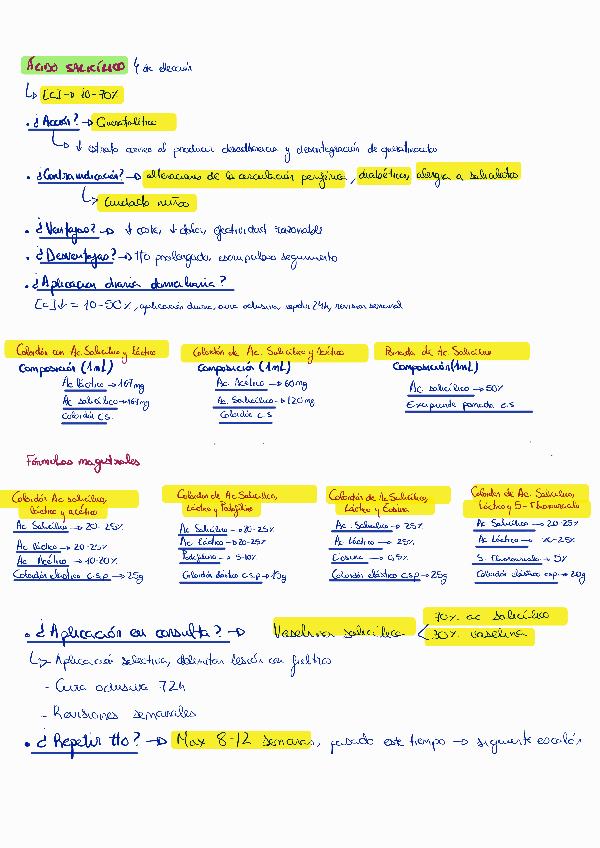 ÁCIDO SALICÍLICO ↳ de elección
↳ [C] → 10-70%
• ¿Acción? → Queratolítico
↳ ↓ estrato córneo al producir descohesión y desintegración de queratinocitos
• ¿Contraindicación? → alteraciones de la circulación periférica, diabéticos, alergia a salicilatos
↳ Cuidado niños
• ¿Ventajas? → ↓ coste, ↓ dolor, efectividad razonable
• ¿Desventajas? → tto prolongado, escrupuloso seguimiento
• ¿Aplicación diaria domiciliaria?
[C]↓ = 10-50%, aplicación diurna, cura oclusiva, repetir 24h, revisión semanal
Colodión con Ac. Salicílico y láctico
Composición (1mL)
Ac láctico → 167mg
Ac salicílico → 167mg
Colodión c.s.
Colodión de Ac. Salicílico y acético
Composición (1mL)
Ac. Acético → 60mg
Ac. Salicílico → 120mg
Colodión c.s
Pomada de Ac. Salicílico
Composición (1mL)
Ac. salicílico → 50%
Excipiente pomada c.s
Fórmulas magistrales
Colodión Ac salicílico,
láctico y acético
Ac Salicílico → 20-25%
Ac láctico → 20-25%
Ac Acético → 10-20%
Colodión elástico c.s.p → 25g
Colodión de Ac Salicílico,
Láctico y Podofilino
Ac Salicílico → 20-25%
Ac. Láctico → 20-25%
Podofilino → 5-10%
Colodión elástico c.s.p → 15g
Colodión de Ac Salicílico,
Láctico y Eosina
Ac. Salicílico → 25%
Ac Láctico → 25%
Eosina → 0,5%
Colodión elástico csp → 25g
Colodión de Ac. Salicílico,
Láctico y 5-Fluorouracilo
Ac Salicílico → 20-25%
Ac Láctico → -25%
5. Fluorouracilo → 5%
Colodión elástico csp → 20g
• ¿Aplicación en consulta? → Vaselina salicílica < 70% ac salicílico
30% vaselina
↳ Aplicación selectiva, delimitar lesión con fieltro
- Cura oclusiva 72h
- Revisiones semanales
• ¿Repetir tto? → Max 8-12 semanas, pasado este tiempo → siguiente escalón